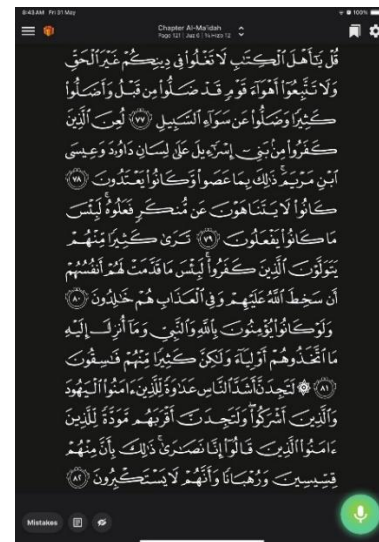 8:43 AM Fri 31 May
100%
Chapter Al-Ma'idah
Page 121 | Juz 6 | ¼ Hizb 12
قُلْ يَـٰٓأَهْلَ ٱلْكِتَـٰبِ لَا تَغْلُوا۟ فِى دِينِكُمْ غَيْرَ ٱلْحَقِّ
وَلَا تَتَّبِعُوٓا۟ أَهْوَآءَ قَوْمٍ قَدْ ضَلُّوا۟ مِن قَبْلُ وَأَضَلُّوا۟
كَثِيرًا وَضَلُّوا۟ عَن سَوَآءِ ٱلسَّبِيلِ ٧٧ لُعِنَ ٱلَّذِينَ
كَفَرُوا۟ مِنۢ بَنِىٓ إِسْرَٰٓءِيلَ عَلَىٰ لِسَانِ دَاوُۥدَ وَعِيسَى
ٱبْنِ مَرْيَمَ ۚ ذَٰلِكَ بِمَا عَصَوا۟ وَّكَانُوا۟ يَعْتَدُونَ ٧٨
كَانُوا۟ لَا يَتَنَاهَوْنَ عَن مُّنكَرٍ فَعَلُوهُ ۚ لَبِئْسَ
مَا كَانُوا۟ يَفْعَلُونَ ٧٩ تَرَىٰ كَثِيرًا مِّنْهُمْ
يَتَوَلَّوْنَ ٱلَّذِينَ كَفَرُوا۟ ۚ لَبِئْسَ مَا قَدَّمَتْ لَهُمْ أَنفُسُهُمْ
أَن سَخِطَ ٱللَّهُ عَلَيْهِمْ وَفِى ٱلْعَذَابِ هُمْ خَـٰلِدُونَ ٨٠
وَلَوْ كَانُوا۟ يُؤْمِنُونَ بِٱللَّهِ وَٱلنَّبِىِّ وَمَآ أُنزِلَ إِلَيْهِ
مَا ٱتَّخَذُوهُمْ أَوْلِيَآءَ وَلَـٰكِنَّ كَثِيرًا مِّنْهُمْ فَـٰسِقُونَ
٨١ ۞ لَتَجِدَنَّ أَشَدَّ ٱلنَّاسِ عَدَٰوَةً لِّلَّذِينَ ءَامَنُوا۟ ٱلْيَهُودَ
وَٱلَّذِينَ أَشْرَكُوا۟ ۖ وَلَتَجِدَنَّ أَقْرَبَهُم مَّوَدَّةً لِّلَّذِينَ
ءَامَنُوا۟ ٱلَّذِينَ قَالُوٓا۟ إِنَّا نَصَـٰرَىٰ ۚ ذَٰلِكَ بِأَنَّ مِنْهُمْ
قِسِّيسِينَ وَرُهْبَانًا وَأَنَّهُمْ لَا يَسْتَكْبِرُونَ ٨٢
Mistakes